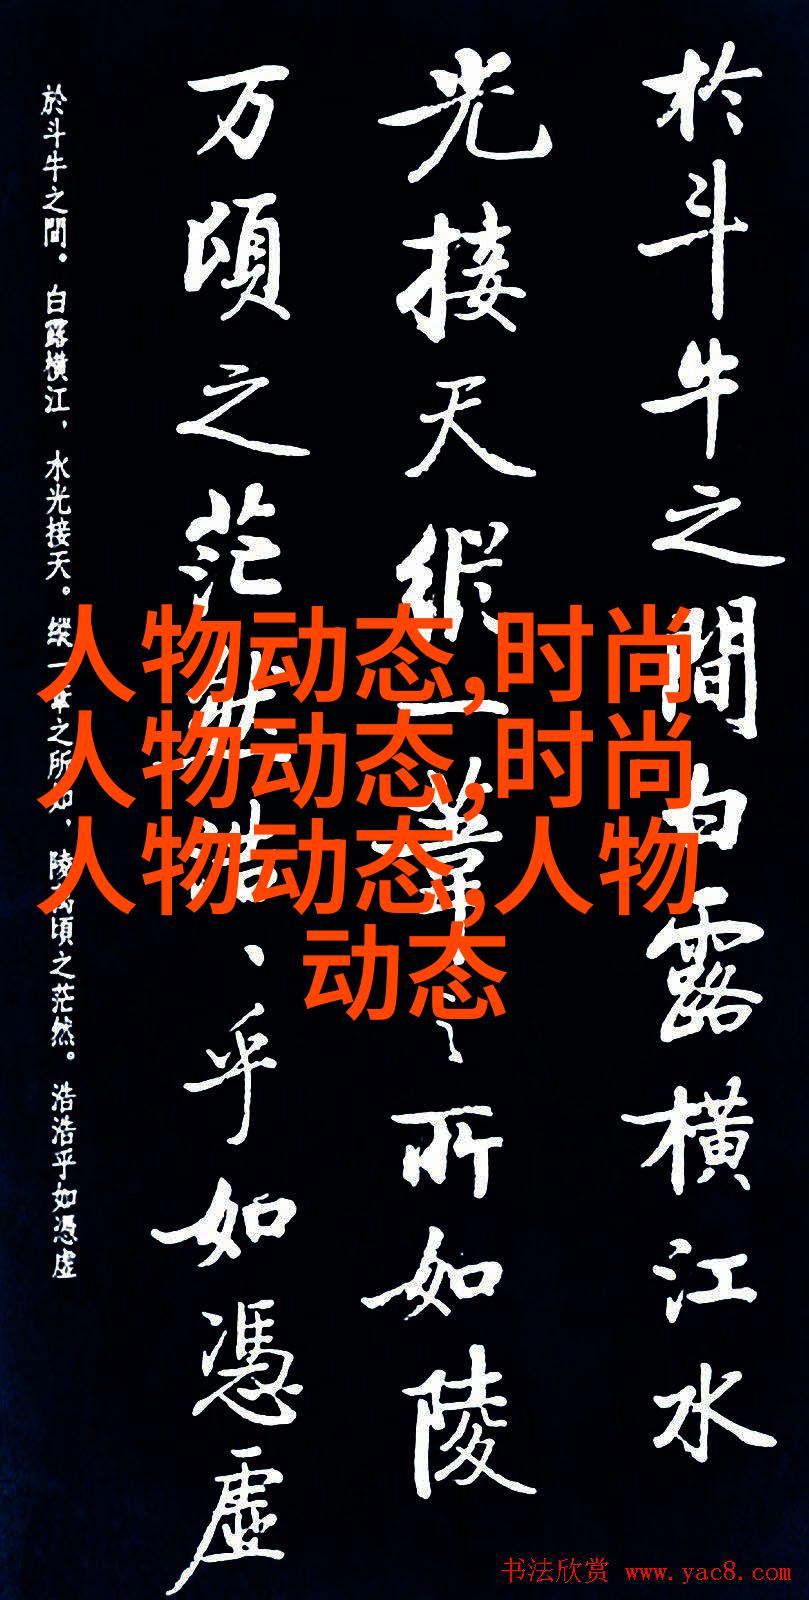 於斗牛之間白露橫江水
光接天縱一葦之所如陵
万頃之茫然浩、乎如憑虛
於斗牛之間。白露橫江，水光接天。縱一葦之所如，陵萬頃之茫然。浩浩乎如憑虛
人物动态,时尚
人物动态,时尚
人物动态,人物
动态
书法欣赏 www.yac8.com